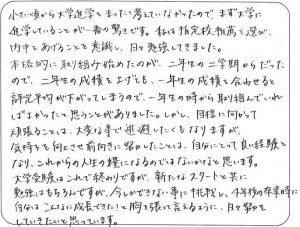 小さい頃から大学進学をまったく考えていなかったので、まず大学に
進学していることが一番の驚きです。私は指定校推薦を選び、
内申をあげることを意識し、日々勉強してきました。
本格的に取り組み始めたのが、二年生の二学期からだった
ので、二年生の成績を上げても、一年生の成績と合わせると
評定平均が下がってしまうので、一年生の時から取り組んでいれ
ばよかったと思うことがありました。しかし、目標に向かって
頑張ることは、大変な事で逃避したくもなりますが、
気持ちを向上させ前向きに努めたことは、自分にとって良い経験と
なり、これからの人生の糧になるのではないかなと思います。
大学受験はこれで終わりですが、新たなスタートと共に
勉強はもちろんですが、今しかできない事に挑戦し、4年後の卒業時に
自分はこんなに成長できたと胸を張って言えるように、日々努力を
していきたいと思っています。